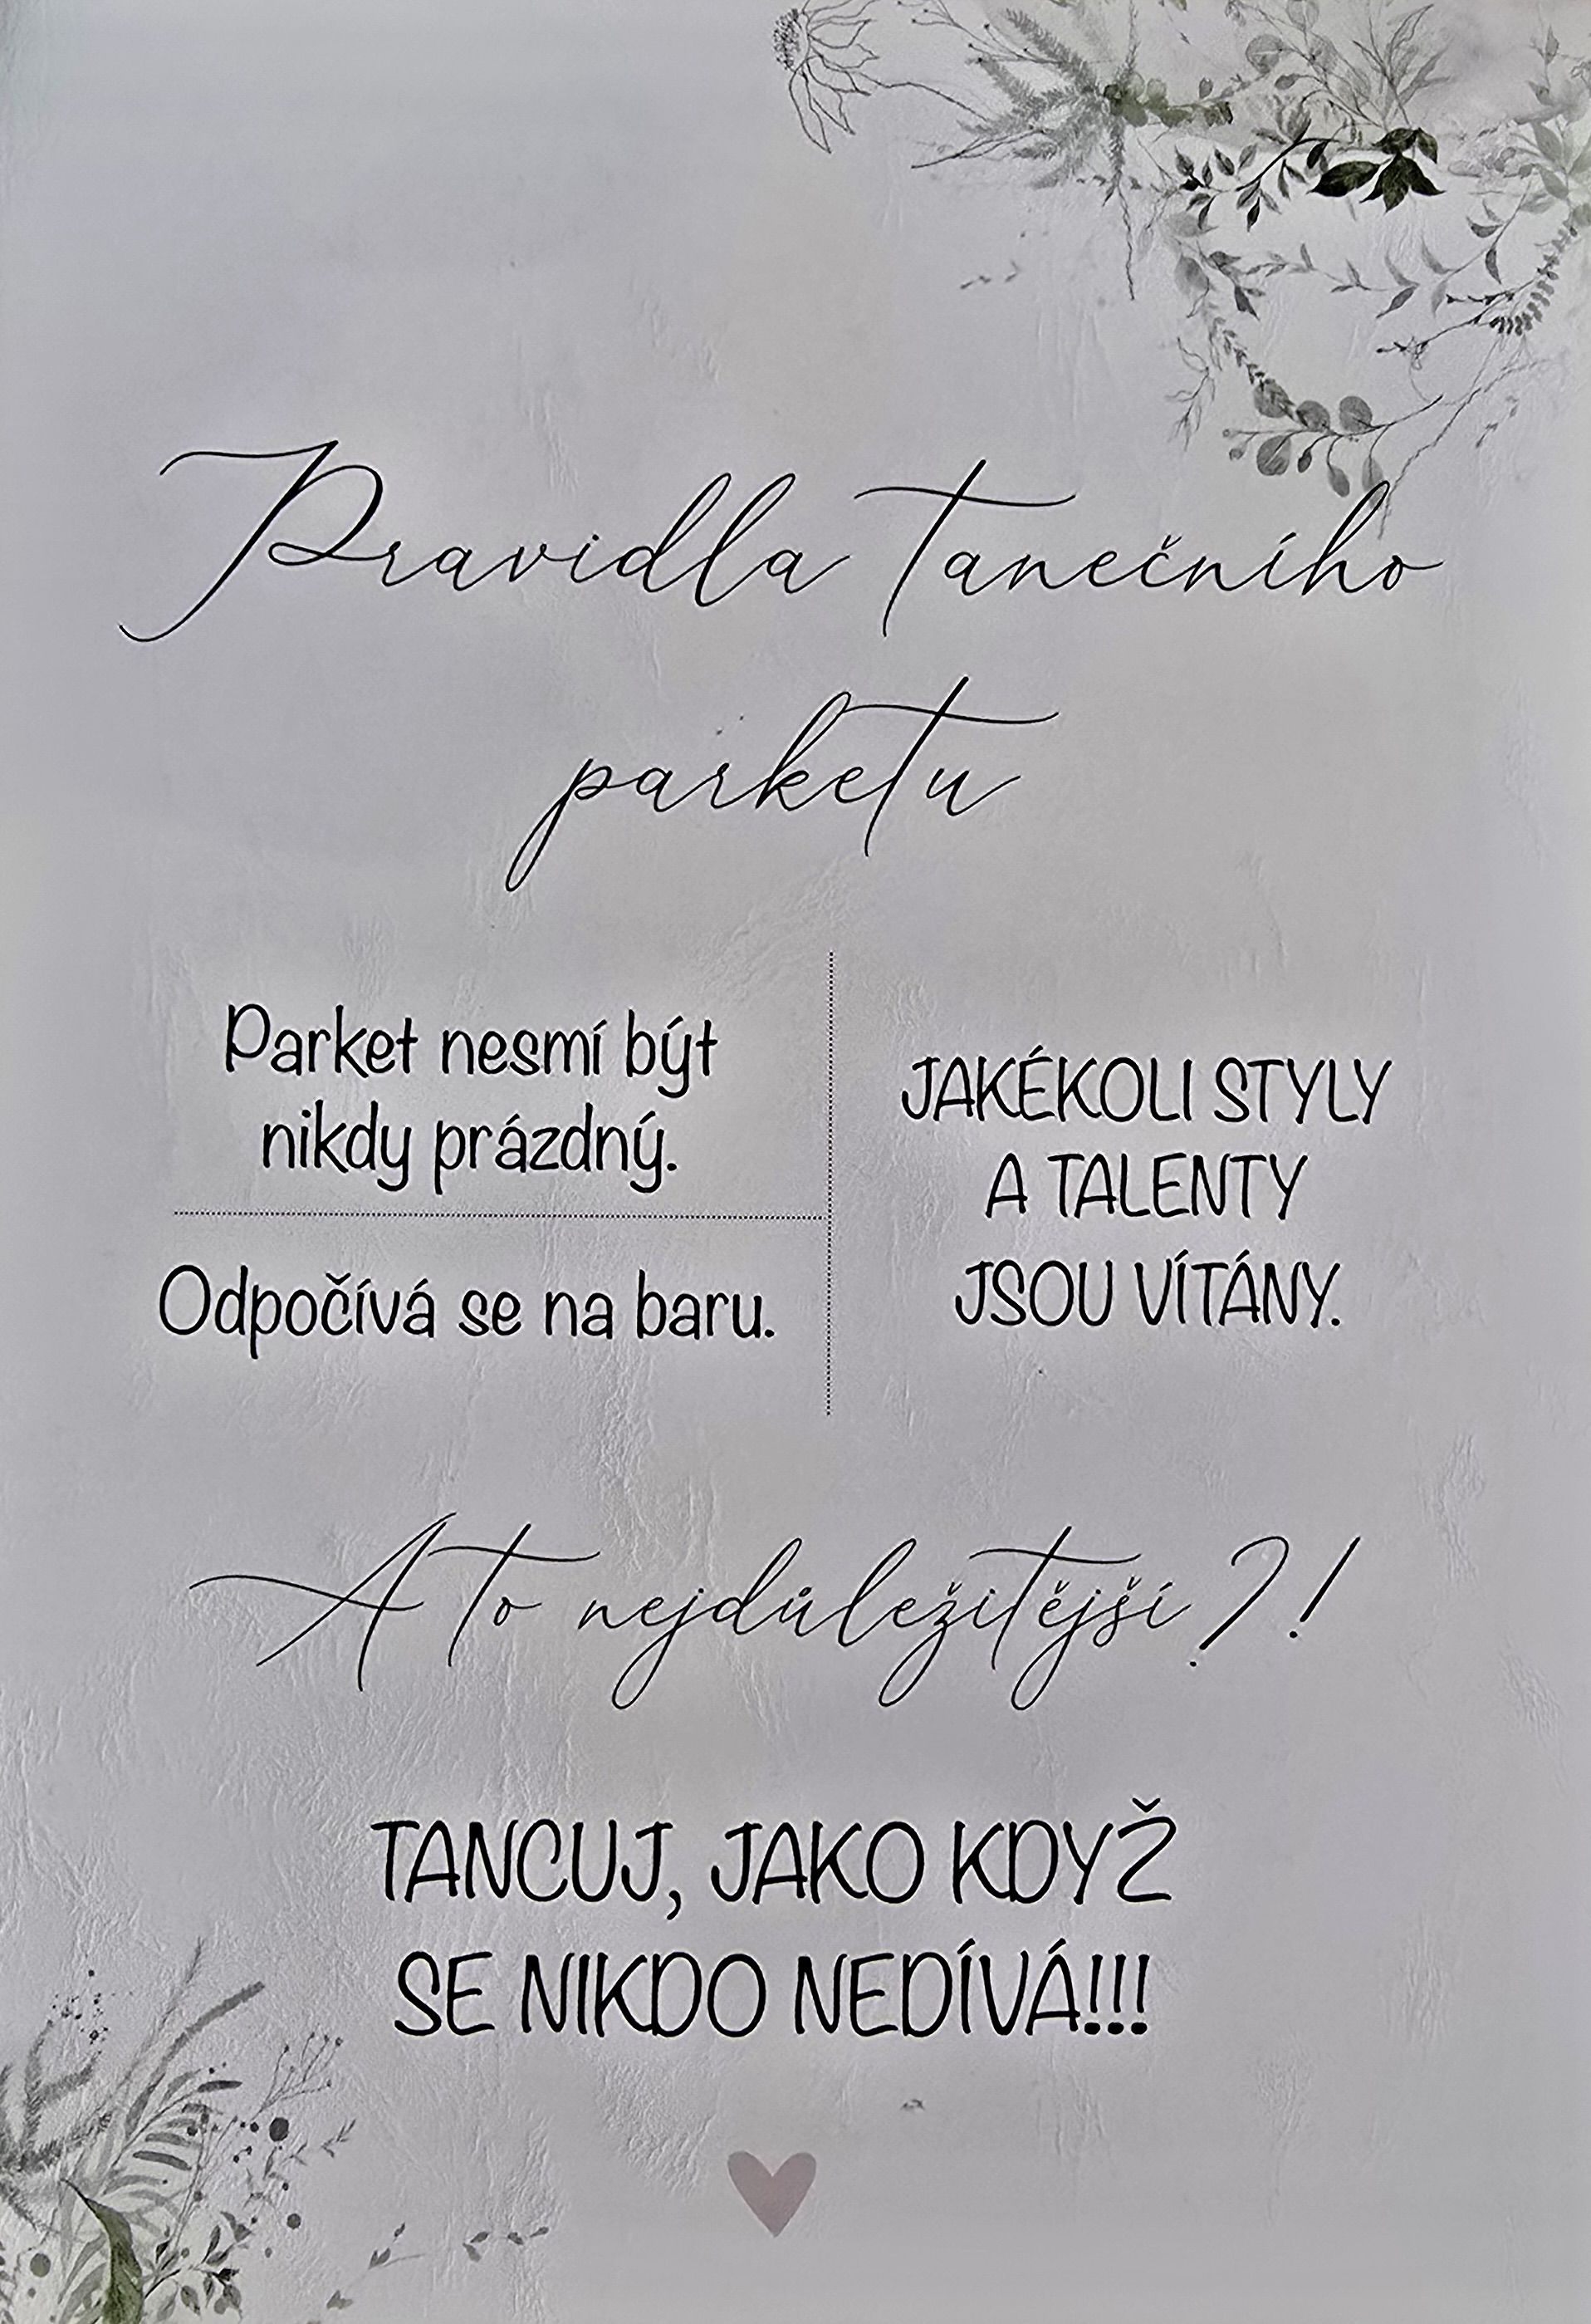 Pravidla tanečního
parketu
Parket nesmí být
nikdy prázdný.
Odpočívá se na baru.
JAKÉKOLI STYLY
A TALENTY
JSOU VÍTÁNY.
A to nejdůležitější?!
TANCUJ, JAKO KDYŽ
SE NIKDO NEDÍVÁ!!!